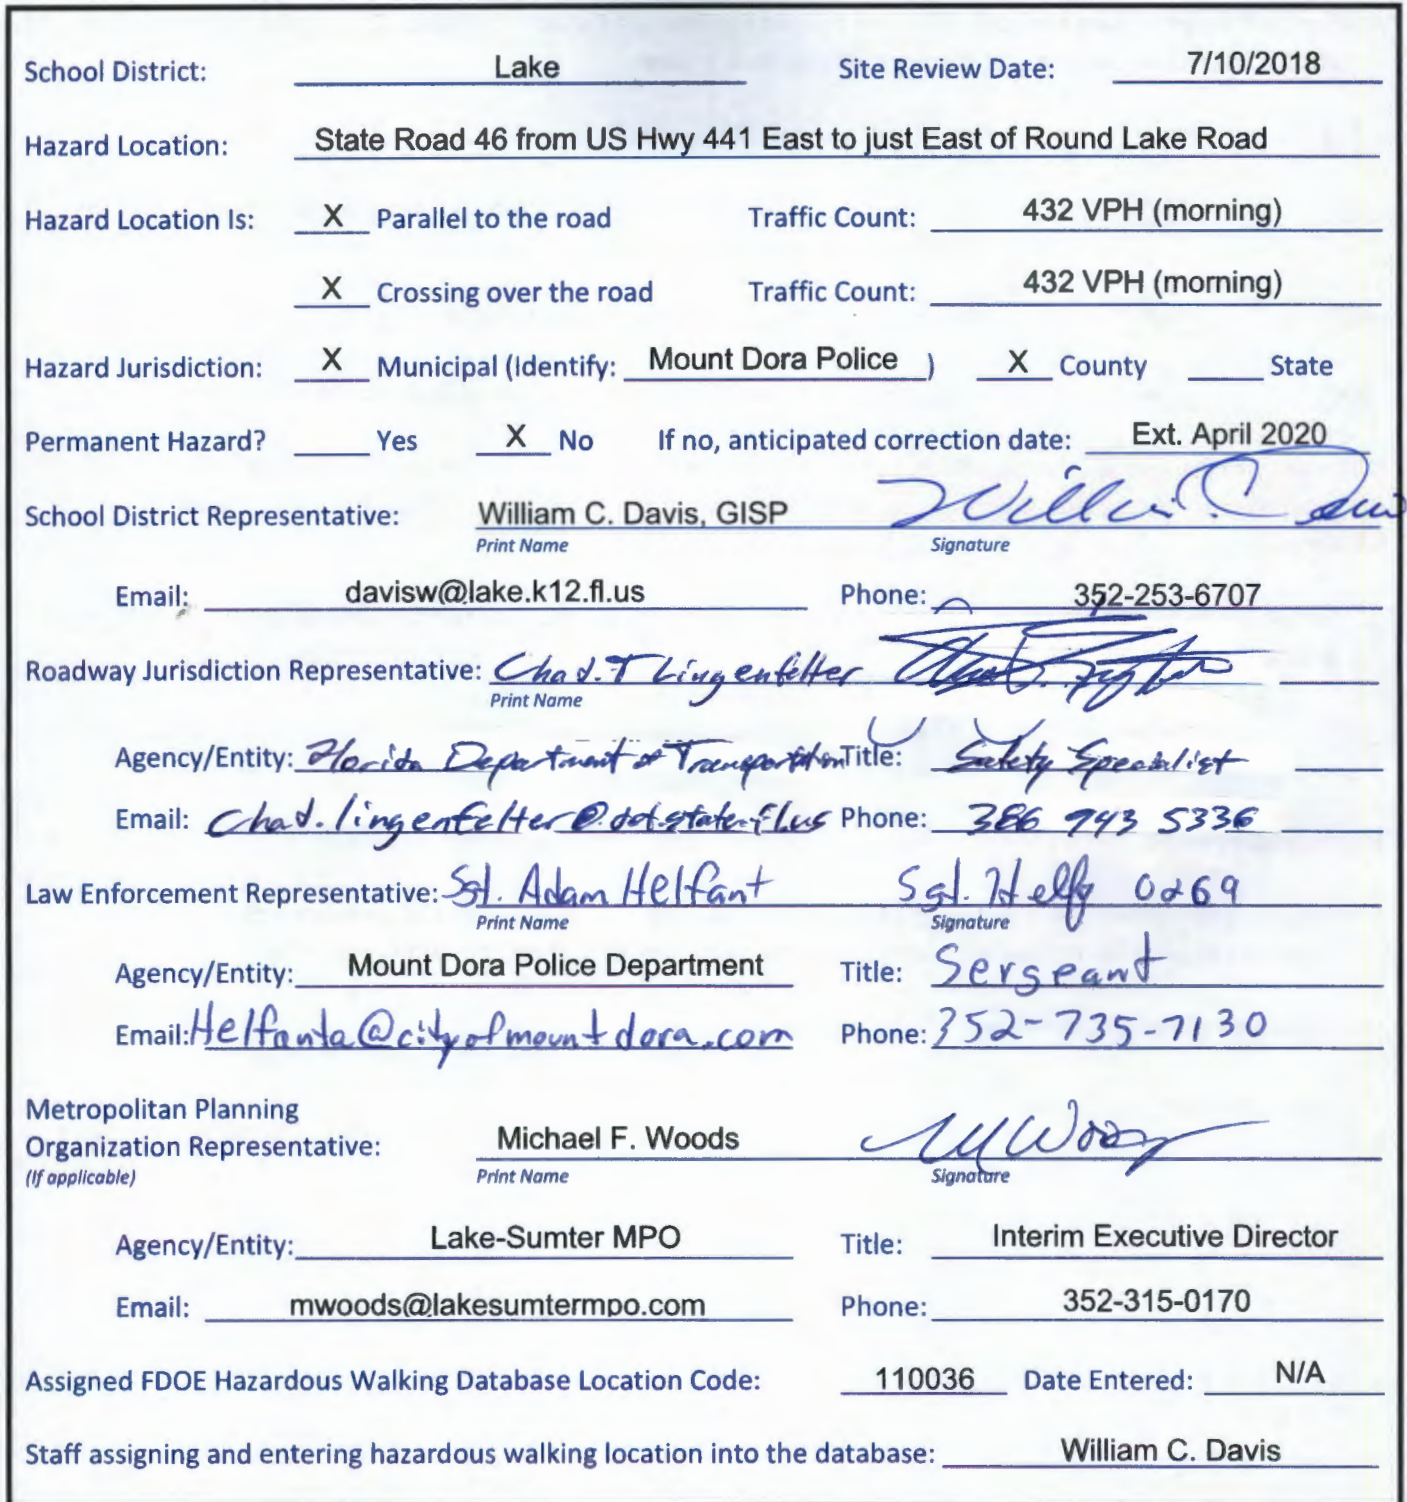 School District: Lake Site Review Date: 7/10/2018
Hazard Location: State Road 46 from US Hwy 441 East to just East of Round Lake Road
Hazard Location Is: X Parallel to the road Traffic Count: 432 VPH (morning)
X Crossing over the road Traffic Count: 432 VPH (morning)
Hazard Jurisdiction: X Municipal (Identify: Mount Dora Police ) X County State
Permanent Hazard? Yes X No If no, anticipated correction date: Ext. April 2020
School District Representative: William C. Davis, GISP
Print Name Signature
Email: davisw@lake.k12.fl.us Phone: 352-253-6707
Roadway Jurisdiction Representative: Chad.T Lingenfelter
Print Name
Agency/Entity: Florida Department of Transportation Title: Safety Specialist
Email: Chad.lingenfelter@dot.state.fl.us Phone: 386 943 5336
Law Enforcement Representative: Sgt. Adam Helfant Sgt. Helf 0269
Print Name Signature
Agency/Entity: Mount Dora Police Department Title: Sergeant
Email: Helfanta@cityofmountdora.com Phone: 352-735-7130
Metropolitan Planning
Organization Representative: Michael F. Woods MWoods
(If applicable) Print Name Signature
Agency/Entity: Lake-Sumter MPO Title: Interim Executive Director
Email: mwoods@lakesumtermpo.com Phone: 352-315-0170
Assigned FDOE Hazardous Walking Database Location Code: 110036 Date Entered: N/A
Staff assigning and entering hazardous walking location into the database: William C. Davis